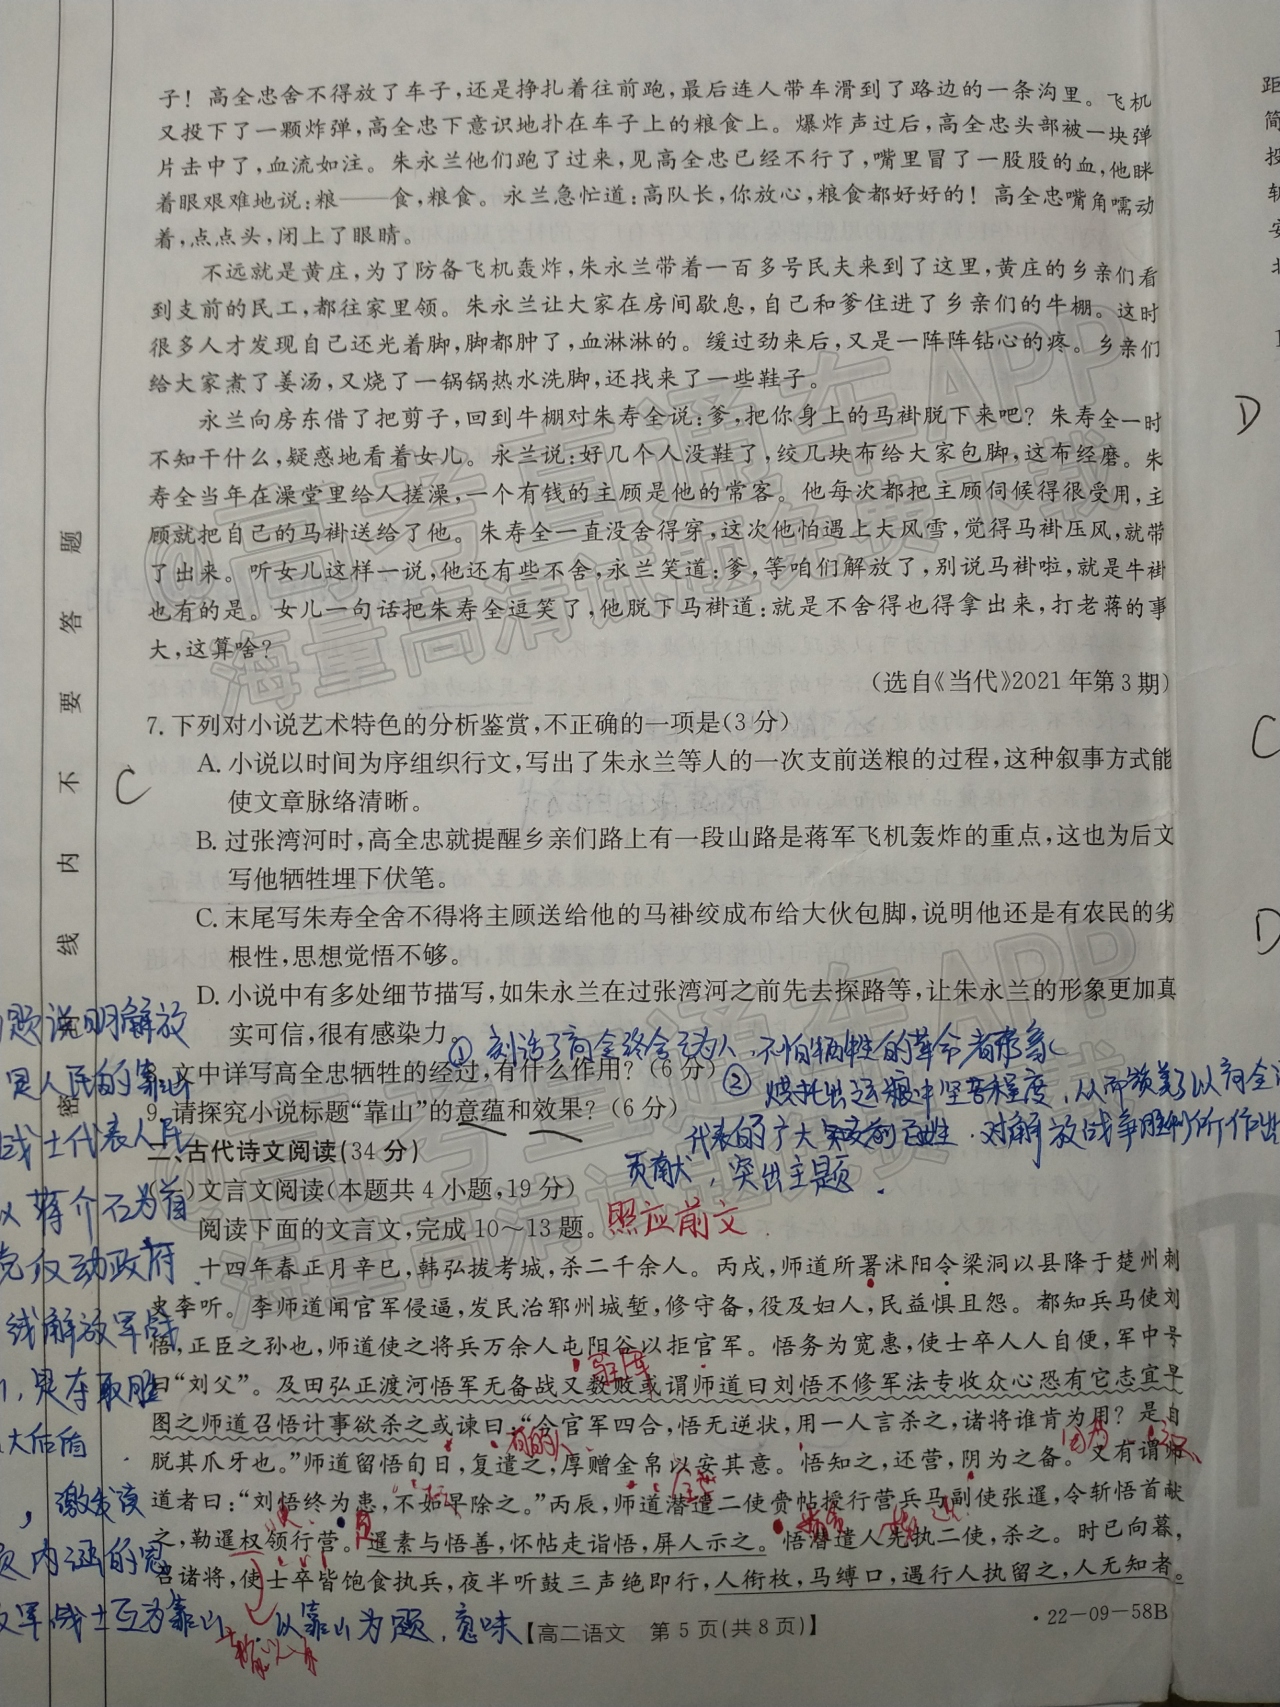 子！高全忠舍不得放了车子,还是挣扎着往前跑,最后连人带车滑到了路边的一条沟里。飞机
又投下了一颗炸弹,高全忠下意识地扑在车子上的粮食上。爆炸声过后,高全忠头部被一块弹
片击中了,血流如注。朱永兰他们跑了过来,见高全忠已经不行了,嘴里冒了一股股的血,他眯
着眼艰难地说:粮——食,粮食。永兰急忙道:高队长,你放心,粮食都好好的！高全忠嘴角嚅动
着,点点头,闭上了眼睛。
不远就是黄庄,为了防备飞机轰炸,朱永兰带着一百多号民夫来到了这里,黄庄的乡亲们看
到支前的民工,都往家里领。朱永兰让大家在房间歇息,自己和爹住进了乡亲们的牛棚。这时
很多人才发现自己还光着脚,脚都肿了,血淋淋的。缓过劲来后,又是一阵阵钻心的疼。乡亲们
给大家煮了姜汤,又烧了一锅锅热水洗脚,还找来了一些鞋子。
永兰向房东借了把剪子,回到牛棚对朱寿全说:爹,把你身上的马褂脱下来吧？朱寿全一时
不知干什么,疑惑地看着女儿。永兰说:好几个人没鞋了,绞几块布给大家包脚,这布经磨。朱
寿全当年在澡堂里给人搓澡,一个有钱的主顾是他的常客。他每次都把主顾伺候得很受用,主
顾就把自己的马褂送给了他。朱寿全一直没舍得穿,这次他怕遇上大风雪,觉得马褂压风,就带
了出来。听女儿这样一说,他还有些不舍,永兰笑道:爹,等咱们解放了,别说马褂啦,就是牛褂
也有的是。女儿一句话把朱寿全逗笑了,他脱下马褂道:就是不舍得也得拿出来,打老蒋的事
大,这算啥？
(选自《当代》2021年第3期)
7. 下列对小说艺术特色的分析鉴赏,不正确的一项是(3分)
A. 小说以时间为序组织行文,写出了朱永兰等人的一次支前送粮的过程,这种叙事方式能
使文章脉络清晰。
C
B. 过张湾河时,高全忠就提醒乡亲们路上有一段山路是蒋军飞机轰炸的重点,这也为后文
写他牺牲埋下伏笔。
C. 末尾写朱寿全舍不得将主顾送给他的马褂绞成布给大伙包脚,说明他还是有农民的劣
根性,思想觉悟不够。
D. 小说中有多处细节描写,如朱永兰在过张湾河之前先去探路等,让朱永兰的形象更加真
实可信,很有感染力
①刻活了高全忠舍己为人、不怕牺牲的革命者形象
文中详写高全忠牺牲的经过,有什么作用？(6分)
②烘托出运粮中坚苦程度,从而领美了以高全
9. 请探究小说标题“靠山”的意蕴和效果？(6分)
代表的广大支前百姓.对解放战争胜利所作出
贡献,突出主题.
二、古代诗文阅读(34分)
)文言文阅读(本题共4小题,19分)
阅读下面的文言文,完成10～13题。
照应前文
十四年春正月辛巳,韩弘拔考城,杀二千余人。丙戌,师道所署沭阳令梁洞以县降于楚州刺
史李听。李师道闻官军侵逼,发民治郓州城堑,修守备,役及妇人,民益惧且怨。都知兵马使刘
悟,正臣之孙也,师道使之将兵万余人屯阳谷以拒官军。悟务为宽惠,使士卒人人自便,军中号
曰“刘父”。及田弘正渡河悟军无备战又数败或谓师道曰刘悟不修军法专收众心恐有它志宜早
图之师道召悟计事欲杀之或谏曰:“今官军四合,悟无逆状,用一人言杀之,诸将谁肯为用？是自
脱其爪牙也。”师道留悟旬日,复遣之,厚赠金帛以安其意。悟知之,还营,阴为之备。又有谓师
道者曰:“刘悟终为患,不如早除之。”丙辰,师道潜遣二使赍帖授行营兵马副使张暹,令斩悟首献
之,勒暹权领行营。暹素与悟善,怀帖走诣悟,屏人示之。悟潜遣人先执二使,杀之。时已向暮,
召诸将,使士卒皆饱食执兵,夜半听鼓三声绝即行,人衔枚,马缚口,遇行人执留之,人无知者。
【高二语文　第5页(共8页)】
·22-09-58B
密
线
内
不
要
答
题
题说明解放
是人民的靠山
战士代表人民
以蒋介石为首
党反动政府
线解放军战
,是夺取胜
大后盾
以靠山为题,意味
驻军
D
C
D
距
@高考直通车APP
海量高清试题免费下载
@高考直通车APP
海量高清试题免费下载